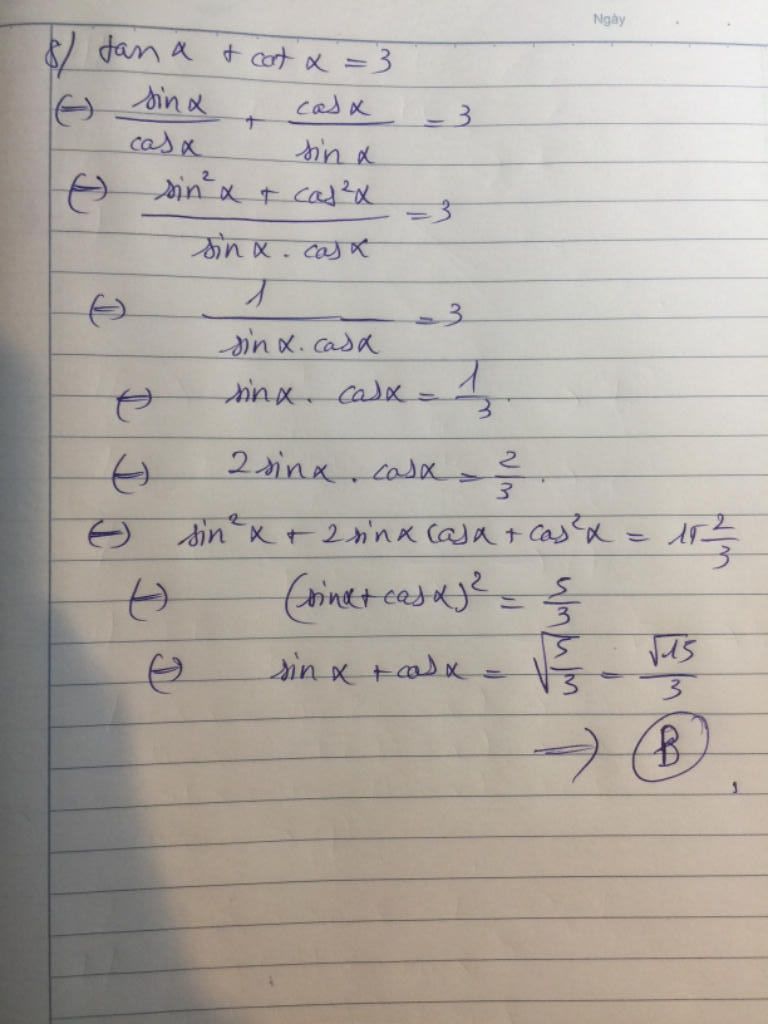 Ngày
8/ tan α + cot α = 3
(=) sin α / cos α + cos α / sin α = 3
(=) (sin²α + cos²α) / (sin α . cos α) = 3
(=) 1 / (sin α . cos α) = 3
(=) sin α . cos α = 1/3 .
(=) 2 sin α . cos α = 2/3 .
(=) sin²α + 2 sin α cos α + cos²α = 1 + 2/3
(=) (sin α + cos α)² = 5/3
(=) sin α + cos α = √(5/3) = √15/3
=) B